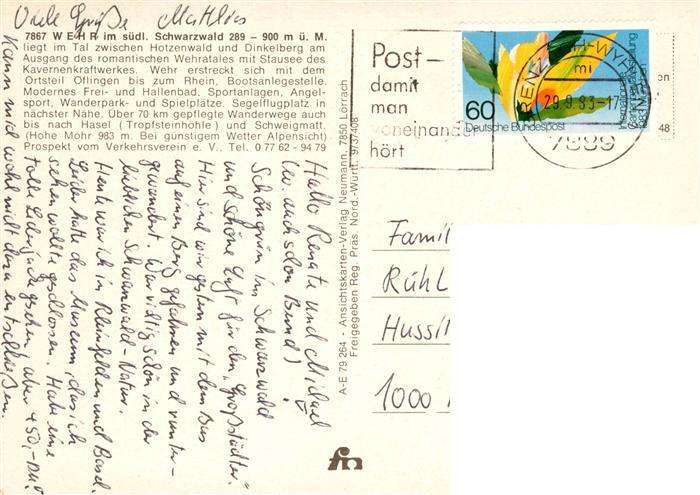 7867 WEHR im südl. Schwarzwald 289 – 900 m ü. M.
liegt im Tal zwischen Hotzenwald und Dinkelberg am
Ausgang des romantischen Wehratales mit Stausee des
Kavernenkraftwerkes. Wehr erstreckt sich mit dem
Ortsteil Öflingen bis zum Rhein, Bootsanlegestelle.
Modernes Frei- und Hallenbad. Sportanlagen, Angel-
sport, Wanderpark- und Spielplätze. Segelflugplatz in
nächster Nähe. Über 70 km gepflegte Wanderwege auch
bis nach Hasel (Tropfsteinhöhle) und Schweigmatt.
(Hohe Mohr 983 m. Bei günstigem Wetter Alpensicht)
Prospekt vom Verkehrsverein e. V., Tel. 0 77 62 - 94 79
Hallo Renate und Michael
(u. auch schon Bernd)
Schöngrün im Schwarzwald
und schöne Luft für den "Großstädter".
Hier sind wir gestern mit dem Bus
auf einen Berg gefahren und runter-
gewandert. War richtig schön in der
lieblichen Schwarzwald-Natur.
Heute war ich in Rheinfelden und Basel.
Leider hatte das Museum, das ich
sehen wollte geschlossen. Habe eine
tolle Lederjacke gesehen, aber 450,- DM?
Kann mich wohl nicht dazu entschließen.
Viele Grüße Matthias
A-E 79 264 - Ansichtskarten-Verlag Neumann, 7850 Lörrach
Freigegeben Reg. Präs. Nord.-Württ. 9/37408
fn
Post –
damit
man
voneinander
hört
60
Deutsche Bundespost
29.9.83-17
mi
48
Famil
Rühl
Hussit
1000